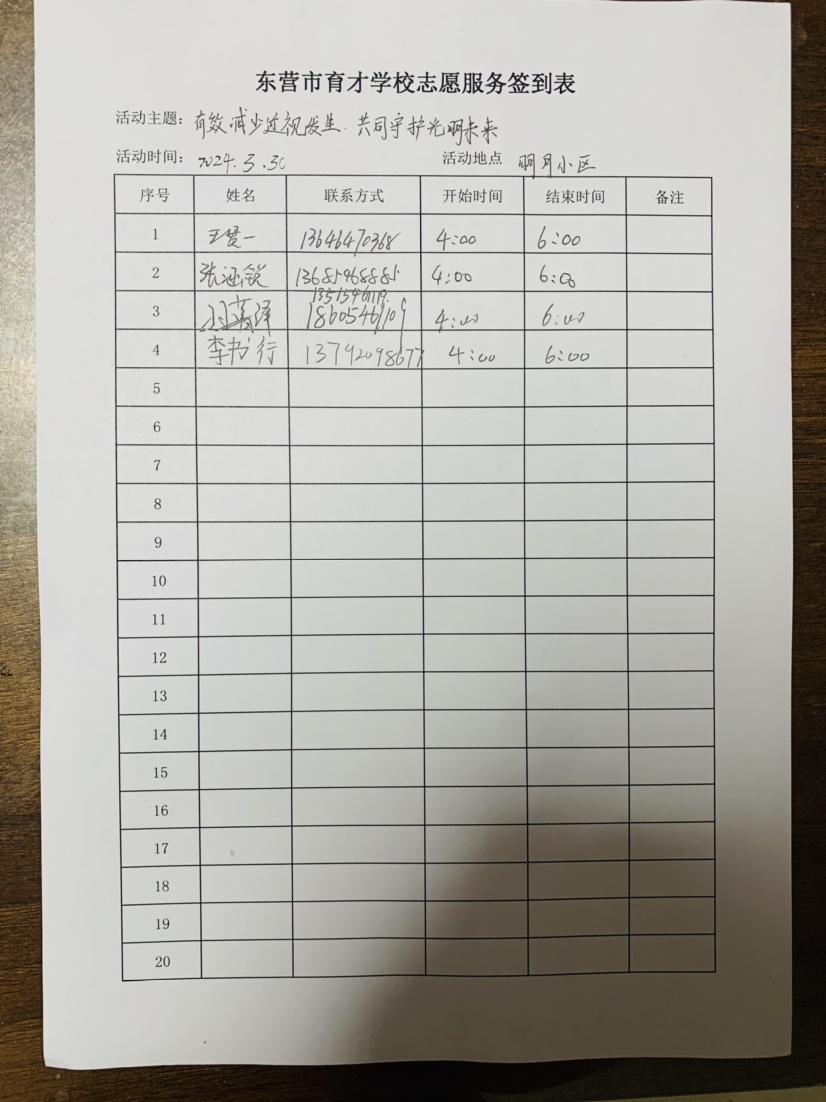 东营市育才学校志愿服务签到表
活动主题：有效减少近视发生.共同守护光明未来
活动时间：2024.3.30 活动地点 明月小区
序号 姓名 联系方式 开始时间 结束时间 备注
1 王贤一 13646470368 4:00 6:00
2 张涵锐 13685468885 4:00 6:00
3 4:00 6:00
4 李书行 13792098677 4:00 6:00
5
6
7
8
9
10
11
12
13
14
15
16
17
18
19
20